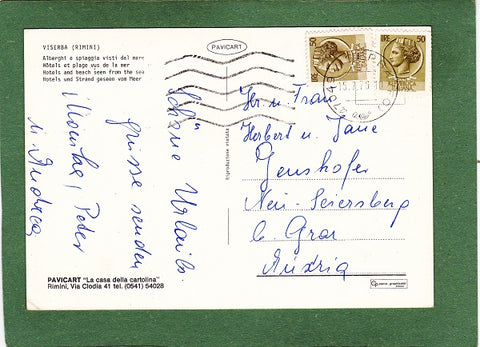 VISERBA (RIMINI)
Alberghi e spiaggia visti dal mare
Hôtels et plage vus de la mer
Hotels and beach seen from the sea
Hotels und Strand gesehen vom Meer
PAVICART
Riproduzione vietata
LIRE 50
LIRE 50
Schöne Urlaubs
grüsse senden
Peter
u. Andrea
Herbert u. Jane
Genshofer
Neu-Seiersberg
b. Graz
Austria
PAVICART "La casa della cartolina"
Rimini, Via Clodia 41 tel. (0541) 54028